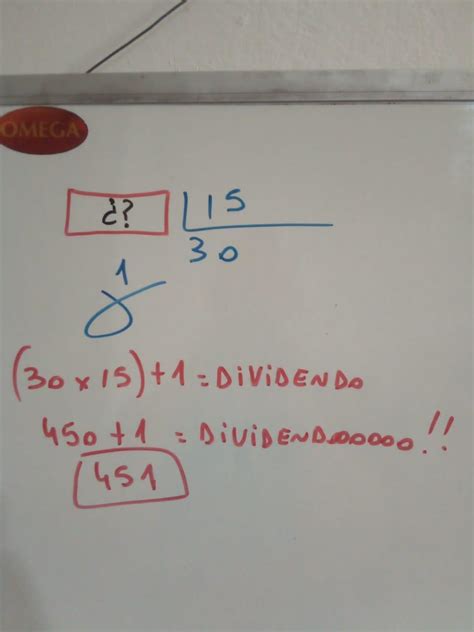 OMEGA
¿? 15
30
1
(30 x 15) + 1 = DiViDENDO
450 + 1 = DiViDENDOOOOO!!
451